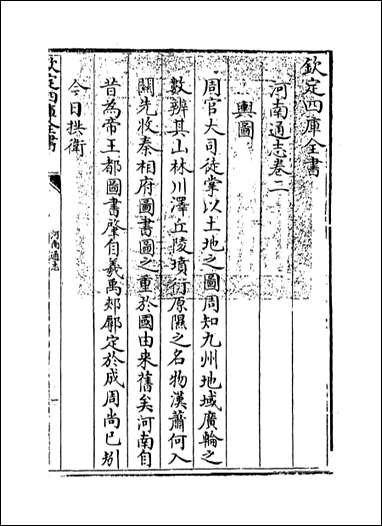 欽定四庫全書
河南通志卷二
輿圖
周官大司徒掌以土地之圖周知九州地域廣輪之
數辨其山林川澤丘陵墳衍原隰之名物漢蕭何入
關先收秦相府圖書圖之重於國由來舊矣河南自
昔為帝王都圖書肇自羲禹郟鄏定於成周尚已矧
今日拱衛
欽定四庫全書
河南通志
一